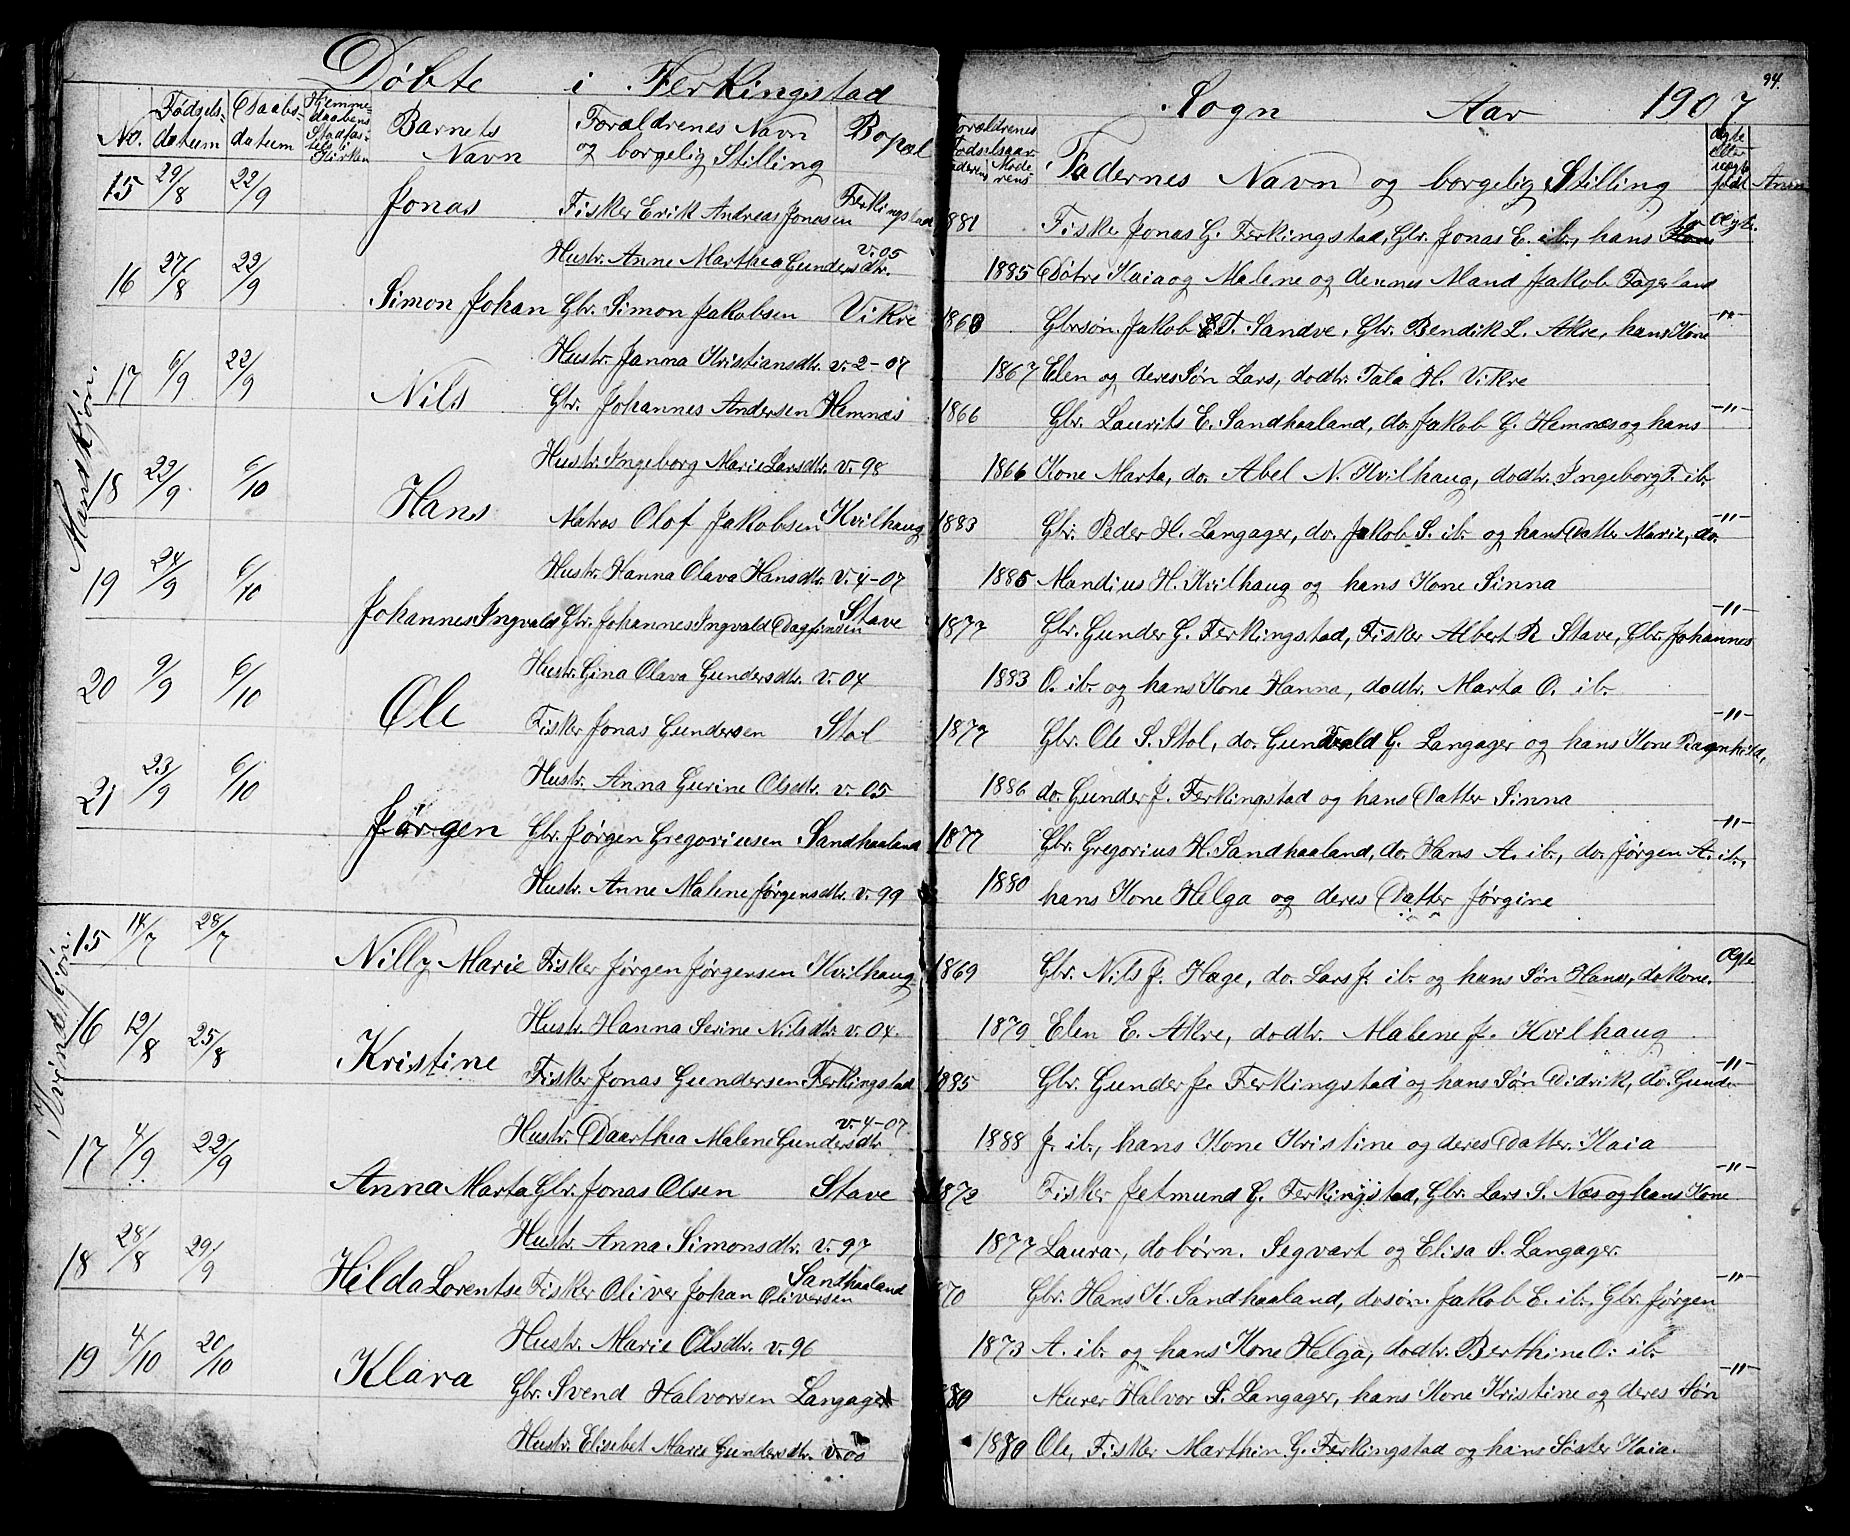 Døbte i Ferkingstad
No.
Fødsels-
datum
Daabs-
datum
Hjemme-
daabens
Stadfæs-
telse i
Kirken
Barnets
Navn
Forældrenes Navn
og borgelig Stilling
Bopæl
15 29/8 22/9 Jonas Fisker Erik Andreas Jonasen Ferkingstad
Hustr. Anne Marthea Gundersdtr. v. 05
16 27/8 22/9 Simon Johan Gbr. Simon Jakobsen Vikre
Hustr. Janna Kristiansdtr. v. 2-07
17 6/9 22/9 Nils Gbr. Johannes Andersen Hemnæs
Hustr. Ingeborg Marie Larsdtr. v. 98
18 22/9 6/10 Hans Matros Olof Jakobsen Kvilhaug
Hustr. Hanna Olava Hansdtr. v. 4-07
19 24/9 6/10 Johannes Ingvald Gbr. Johannes Ingvald Dagfinsen Stave
Hustr. Gina Olava Gundersdtr. v. 04
20 9/9 6/10 Ole Fisker Jonas Gundersen Stol
Hustr. Anna Gurine Olsdtr. v. 05
21 23/9 6/10 Jørgen Gbr. Jørgen Gregoriusen Sandhaaland
Hustr. Anne Malene Jørgensdtr. v. 99
Mandkjøn.
15 14/7 28/7 Nilly Marie Fisker Jørgen Jørgensen Kvilhaug
Hustr. Hanna Serine Nilsdtr. v. 04.
16 12/8 25/8 Kristine Fisker Jonas Gundersen Ferkingstad
Hustr. Daarthea Malene Gundersdtr v. 4-07
17 4/9 22/9 Anna Marta Gbr. Jonas Olsen Stave
Hustr. Anna Simonsdtr. v. 97
18 28/8 29/9 Hilda Lorentse Fisker Oliver Johan Oliversen Sandhaaland
Hustr. Marie Olsdtr. v. 96
19 4/10 20/10 Klara Gbr. Svend Halvorsen Langager
Hustr. Elisebet Marie Gundersdtr. v. 00
Kvindekjøn.
Sogn Aar 1907
94.
Forældrenes
Fødselsaar
Faderens
Mode-
rens
Fadernes Navn og borgelig Stilling
ægte
eller
uægte
født
Anm
1881 Fisker Jonas G. Ferkingstad, Gbr. Jonas E. ib., hans to Ægte.
1885 Døtre Kaia og Malene og dennes Mand Jakob Fagerland
1868 Gbrsøn. Jakob T. Sandve, Gbr. Bendik L. Akre, hans Kone -"-
1867 Elen og deres Søn Lars, dodtr. Tala H. Vikre
1866 Gbr. Laurits E. Sandhaaland, do. Jakob G. Hemnæs og hans -"-
1866 Kone Marta, do. Abel N. Kvilhaug, dodtr. Ingeborg T. ib.
1883 Gbr. Peder H. Langager, do. Jakob S. ib. og hans Datter Marie, do. -"-
1885 Mandius H. Kvilhaug og hans Kone Sinna
1877 Gbr. Gunder G. Ferkingstad, Fisker Albert R Stave, Gbr. Johannes -"-
1883 O. ib. og hans Kone Hanna, dodtr. Marta O. ib.
1877 Gbr. Ole S. Stol, do. G. Langager og hans Kone Ragnhild, -"-
1886 do. Gunder J. Ferkingstad og hans Datter Sinna
1877 Gbr. Gregorius H. Sandhaaland, do. Hans A. ib., do. Jørgen A. ib., -"-
1880 hans Kone Helga og deres Datter Jørgine
1869 Gbr. Nils J. Hage, do. Lars J. ib. og hans Søn Hans, dokone. Ægte
1879 Elen E. Akre, dodtr. Malene J. Kvilhaug
1885 Gbr. Gunder J. Ferkingstad og hans Søn Didrik, do. Gunder -"-
1888 J. ib., hans Kone Kristine og deres Datter. Kaia
1872 Fisker Jetmund G. Ferkingstad, Gbr. Lars S. Næs og hans Kone -"-
1877 Laura, dobørn. Segvart og Elisa S. Langager.
70 Gbr. Hans K. Sandhaaland, dosøn. Jakob E. ib. Gbr. Jørgen -"-
1873 A. ib. og hans Kone Helga, dodtr. Berthine O. ib.
80 Murer Halvor S. Langager, hans Kone Kristine og deres Søn -"-
1880 Ole, Fisker Marthin G. Ferkingstad og hans Søster Kaia.